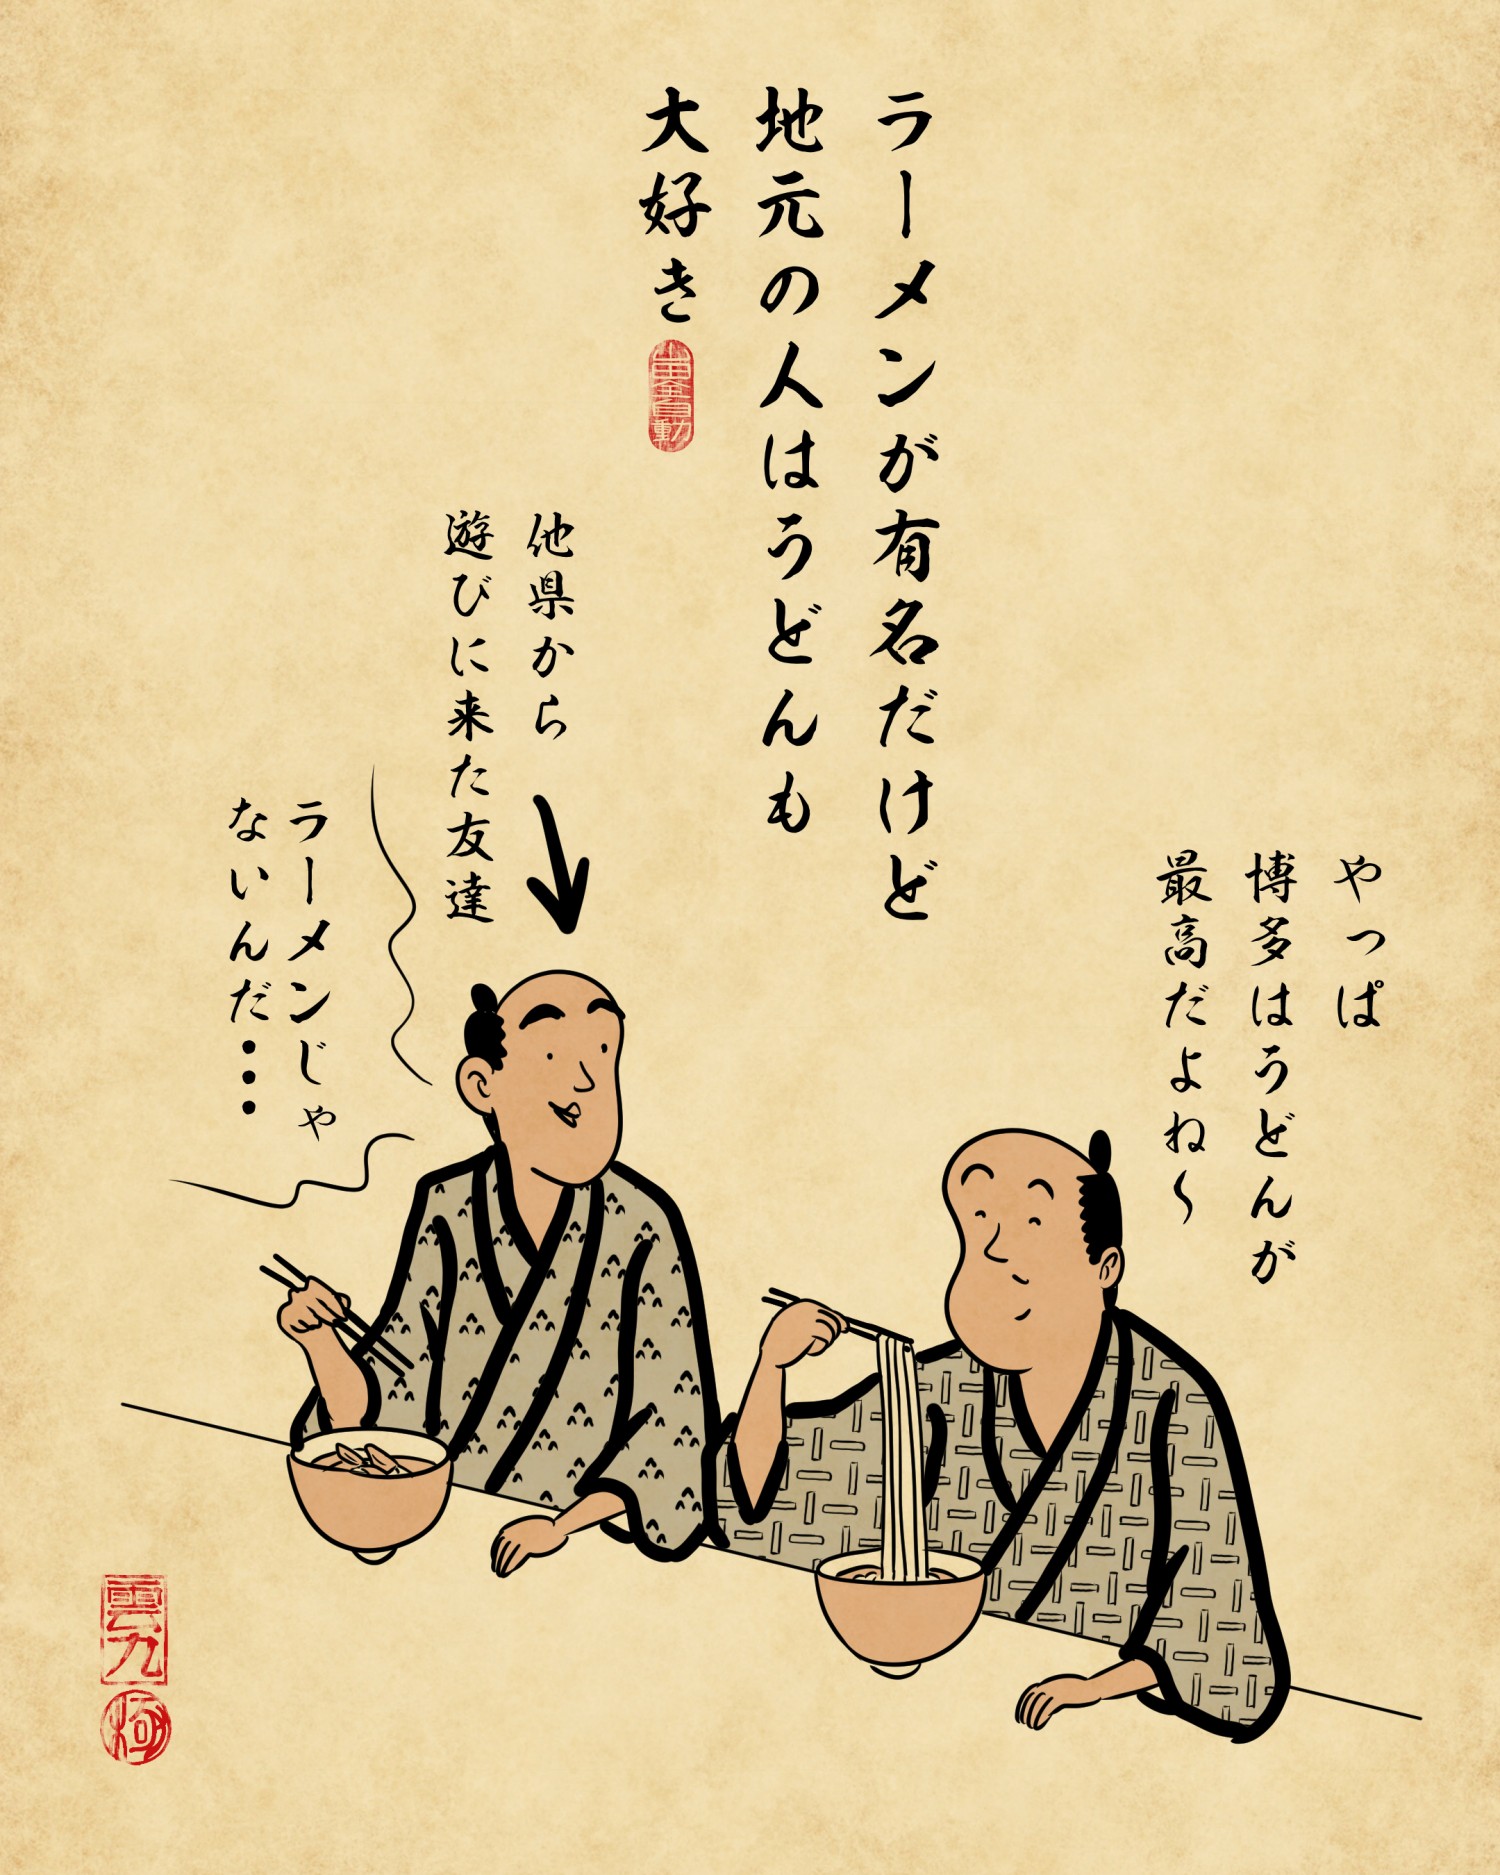 ラーメンが有名だけど
地元の人はうどんも
大好き
やっぱ
博多はうどんが
最高だよね〜
他県から
遊びに来た友達
ラーメンじゃ
ないんだ・・・